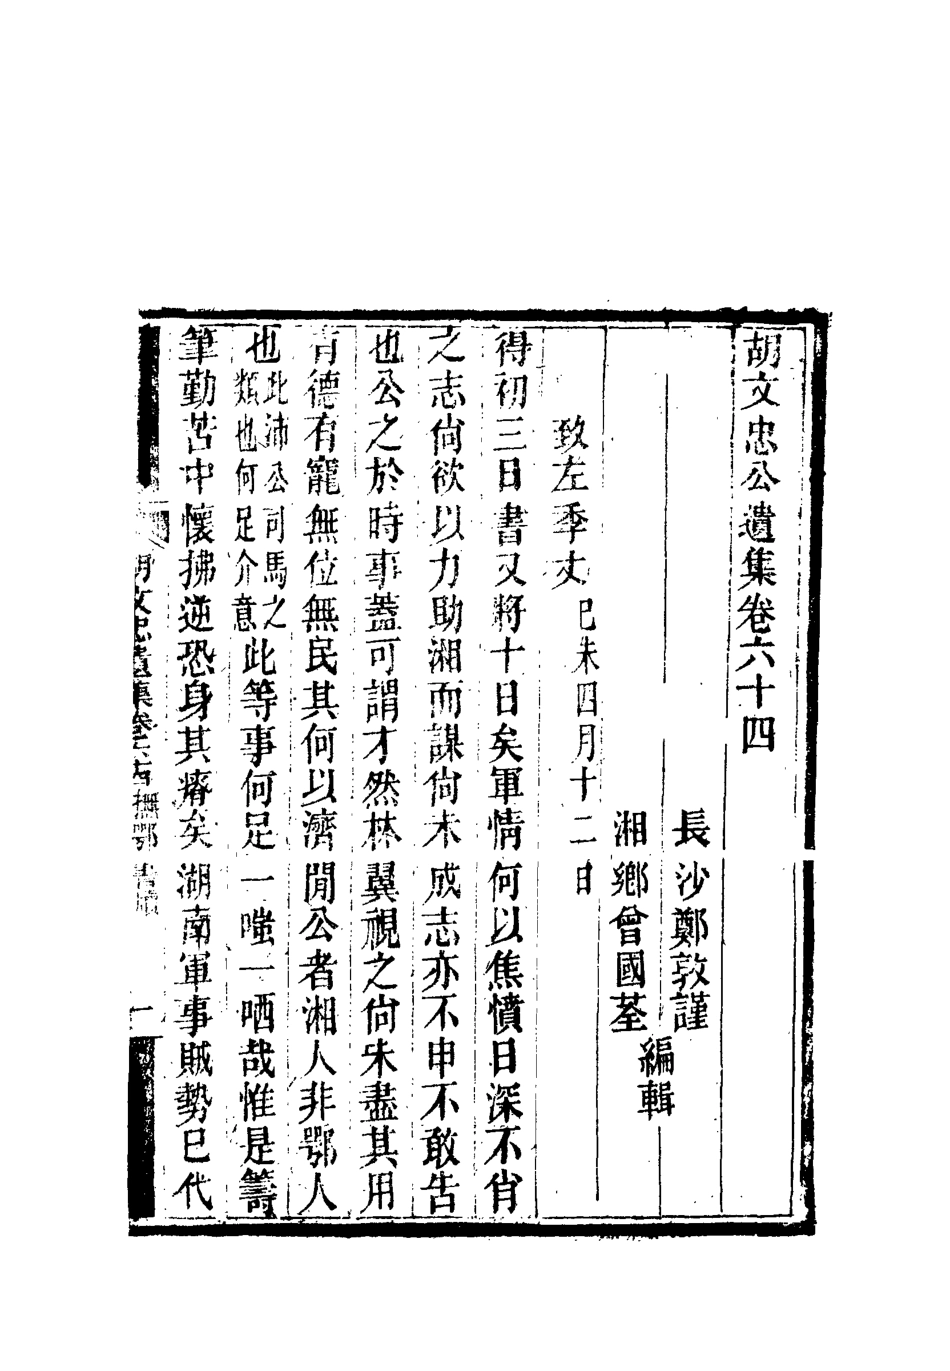 胡文忠公遺集卷六十四
長沙鄭敦謹
湘鄉曾國荃
編輯
致左季丈 已未四月十二日
得初三日書又將十日矣軍情何以焦憤日深不肖
之志尙欲以力助湘而謀尙未成志亦不申不敢告
也公之於時事蓋可謂才然林翼視之尙未盡其用
有德有寵無位無民其何以濟閒公者湘人非鄂人
也此沛公司馬之類也何足介意此等事何足一嗤一哂哉惟是籌
筆勤苦中懷拂逆恐身其瘠矣湖南軍事賊勢已代
胡文忠遺集卷六十四 撫鄂 書牘 一